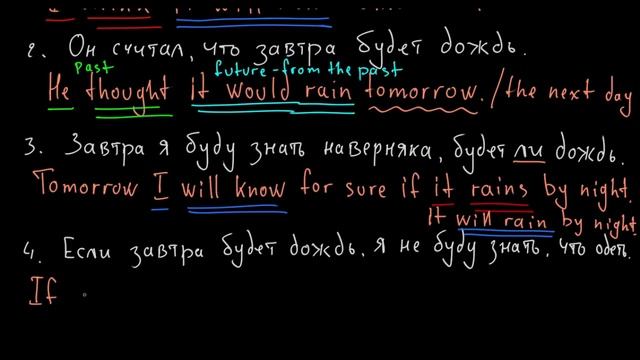 2. Он считал, что завтра будет дождь.
past future-from the past
He thought it would rain tomorrow. /the next day
3. Завтра я буду знать наверняка, будет ли дождь.
Tomorrow I will know for sure if it rains by night.
It will rain by night.
4. Если завтра будет дождь, я не буду знать, что одеть.
If